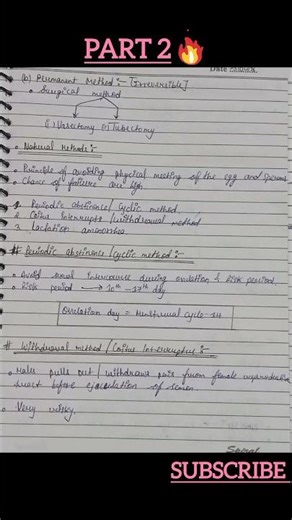 PART 2 🔥
Date
(b) Permanent Method :- [Irreversible]
• Surgical method
(i) Vasectomy (ii) Tubectomy
• Natural Methods :-
• Principle of avoiding physical meeting of the egg and sperms
• Chance of failure are high
1. Periodic abstinence / Cyclic method
2. Coitus Interruptus / withdrawal method
3. Lactation amenorrhea
# Periodic abstinence / cyclic method :-
• Avoid intercourse during ovulation & Risk period.
• Risk period → 10th - 17th day
Ovulation day = Menstrual cycle - 14
# Withdrawal method / Coitus Interruptus :-
• Male pulls out / withdraws penis from female reproductive
tract before ejaculation of semen.
• Very risky.
Spiral
SUBSCRIBE